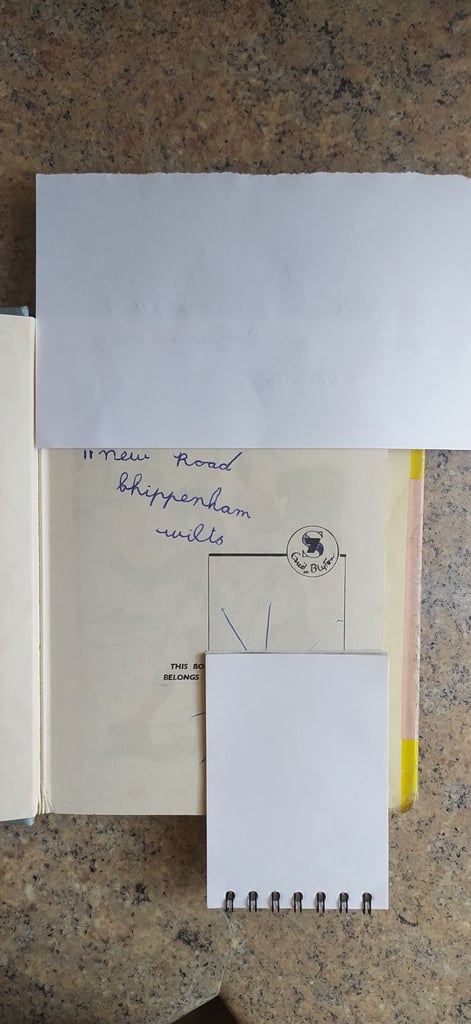 11 new Road
Chippenham
wilts
7
Enid Blyton
THIS BO
BELONGS